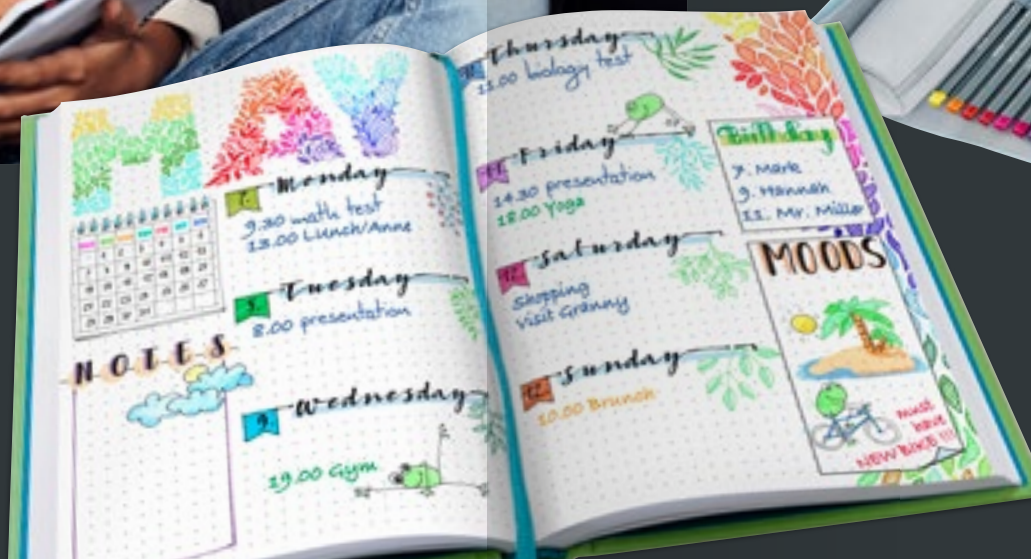 MAY
7. Monday
9.30 math test
13.00 Lunch/Anne
8. Tuesday
8.00 presentation
NOTES
9. Wednesday
19.00 Gym
Thursday
11.00 biology test
11. Friday
14.30 presentation
18.00 Yoga
12. Saturday
Shopping
Visit Granny
Sunday
10.00 Brunch
Birthday
7. Marie
9. Hannah
11. Mr. Miller
MOODS
must
have
NEW BIKE !!!